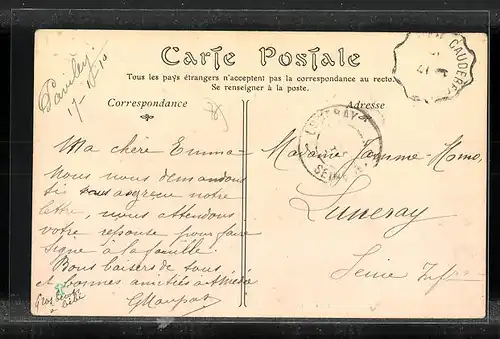 Carte Postale
Tous les pays étrangers n'acceptent pas la correspondance au recto.
Se renseigner à la poste.
Correspondance
Adresse
Pavilly
CAUDEBE
LUNERAY
SEINE
Ma chère Emma
Nous nous demandons
si vous avez reçu notre
lettre, nous attendons
votre réponse pour faire
signe à la famille.
Bons baisers de tous
et bonnes amitiés à Amédé
Gros
à bébé
Madame Jamme-
Luneray
Seine Infre